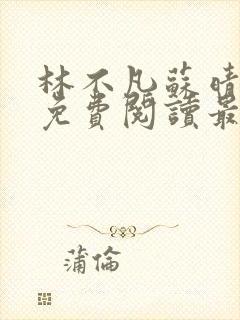 林不凡蘇晴
免費閱讀最
蒲倫